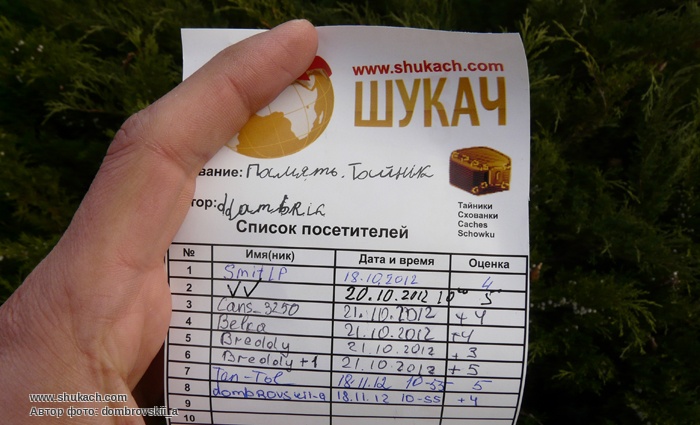 www.shukach.com
ШУКАЧ
вание: Память. Тайнік
тор:
Тайники
Сховanки
Caches
Schowku
Список посетителей
№ Имя(ник) Дата и время Оценка
1 SmitLP 18.10.2012 4
2 VV 20.10.2012 10⁰⁰ 5
3 Cans_3250 21.10.2012 +4
4 Belka 21.10.2012 +4
5 Breddy 21.10.2012 +3
6 Breddy+1 21.10.2012 +5
7 Tan-Tol 18.11.12 10-55 5
8 dombrovskii-a 18.11.12 10-55 +4
9
10
www.shukach.com
Автор фото: dombrovskii.a